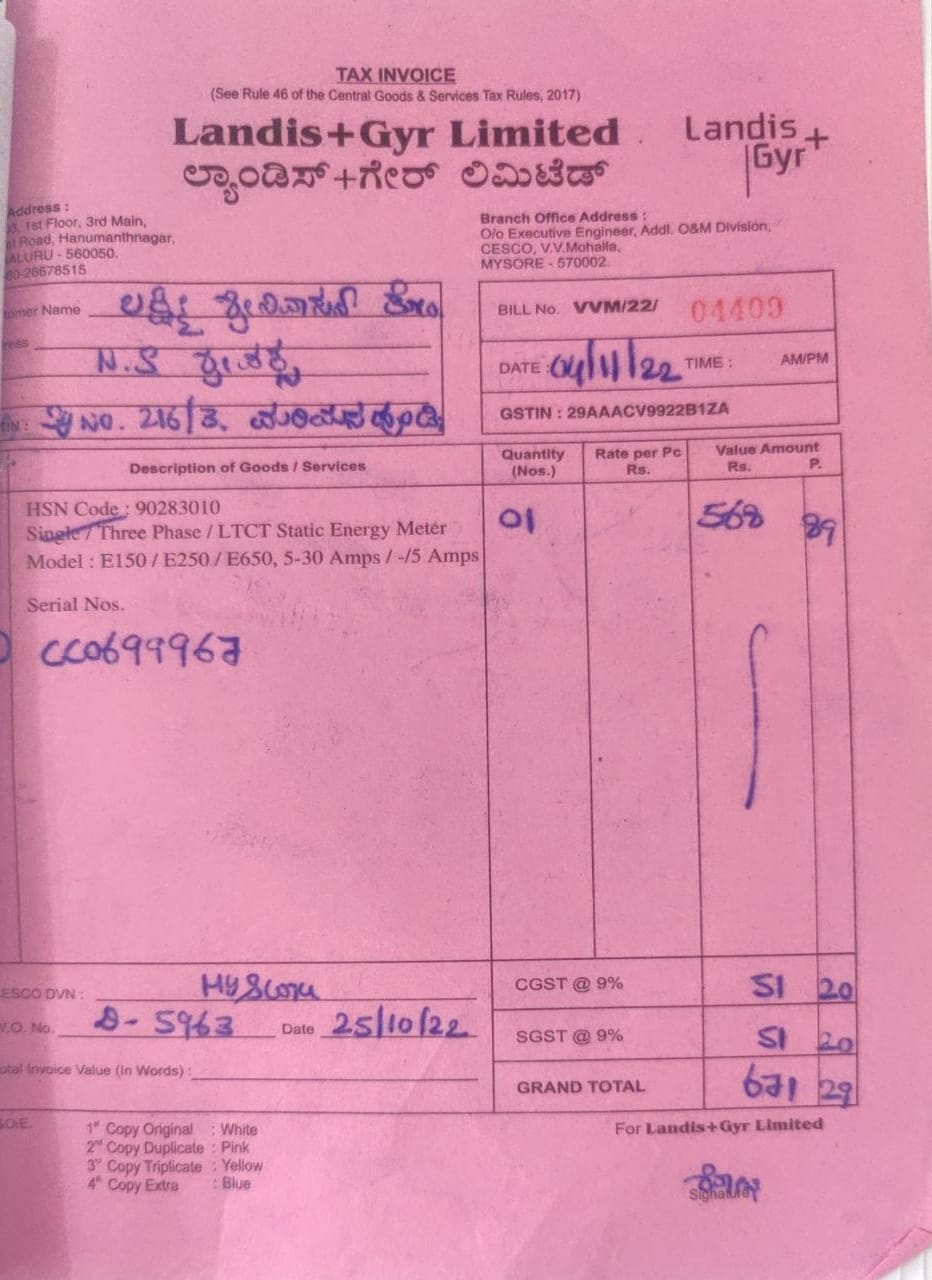 TAX INVOICE
(See Rule 46 of the Central Goods & Services Tax Rules, 2017)
Landis+Gyr Limited
Landis+
Gyr
ಲ್ಯಾಂಡಿಸ್+ಗೇರ್ ಲಿಮಿಟೆಡ್
Address :
3, 1st Floor, 3rd Main,
Road, Hanumanthnagar,
ALURU - 560050.
26678515
Branch Office Address :
O/o Executive Engineer, Addl. O&M Division,
CESCO, V.V.Mohalla,
MYSORE - 570002.
omer Name ಲಕ್ಷ್ಮೀ ಶ್ರೀನಿವಾಸನ್ ಕೋಂ
ress
N.S
NO. 216/3.
BILL No. VVM/22/ 04409
DATE : 04/11/22 TIME : AM/PM
GSTIN : 29AAACV9922B1ZA
Description of Goods / Services
Quantity (Nos.)
Rate per Pc Rs.
Value Amount Rs. P.
HSN Code : 90283010
Single / Three Phase / LTCT Static Energy Meter
Model : E150 / E250 / E650, 5-30 Amps / -/5 Amps
01 568 89
Serial Nos.
CC0699967
ESCO DVN :
CGST @ 9% 51 20
V.O. No. D- 5963 Date 25/10/22
SGST @ 9% 51 20
otal Invoice Value (In Words) :
GRAND TOTAL 671 29
O.E.
1st Copy Original : White
2nd Copy Duplicate : Pink
3rd Copy Triplicate : Yellow
4th Copy Extra : Blue
For Landis+Gyr Limited
Signature